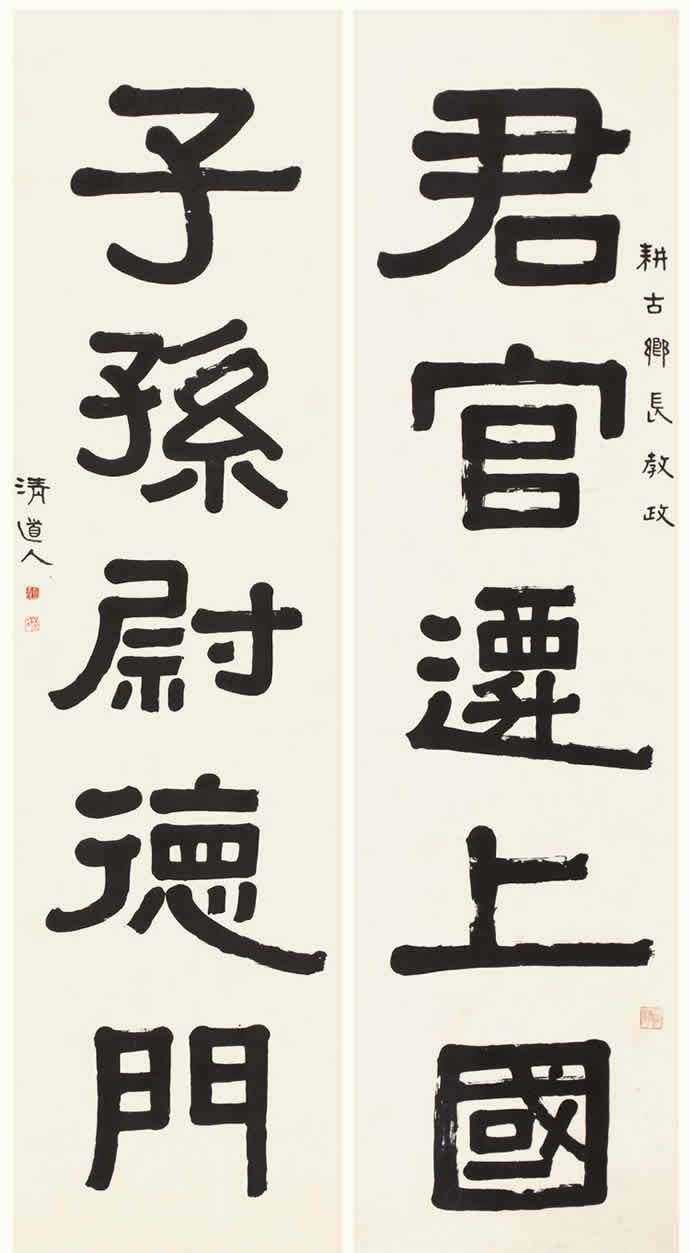 耕古鄉長教政
君官遷上國
子孫尉德門
清道人